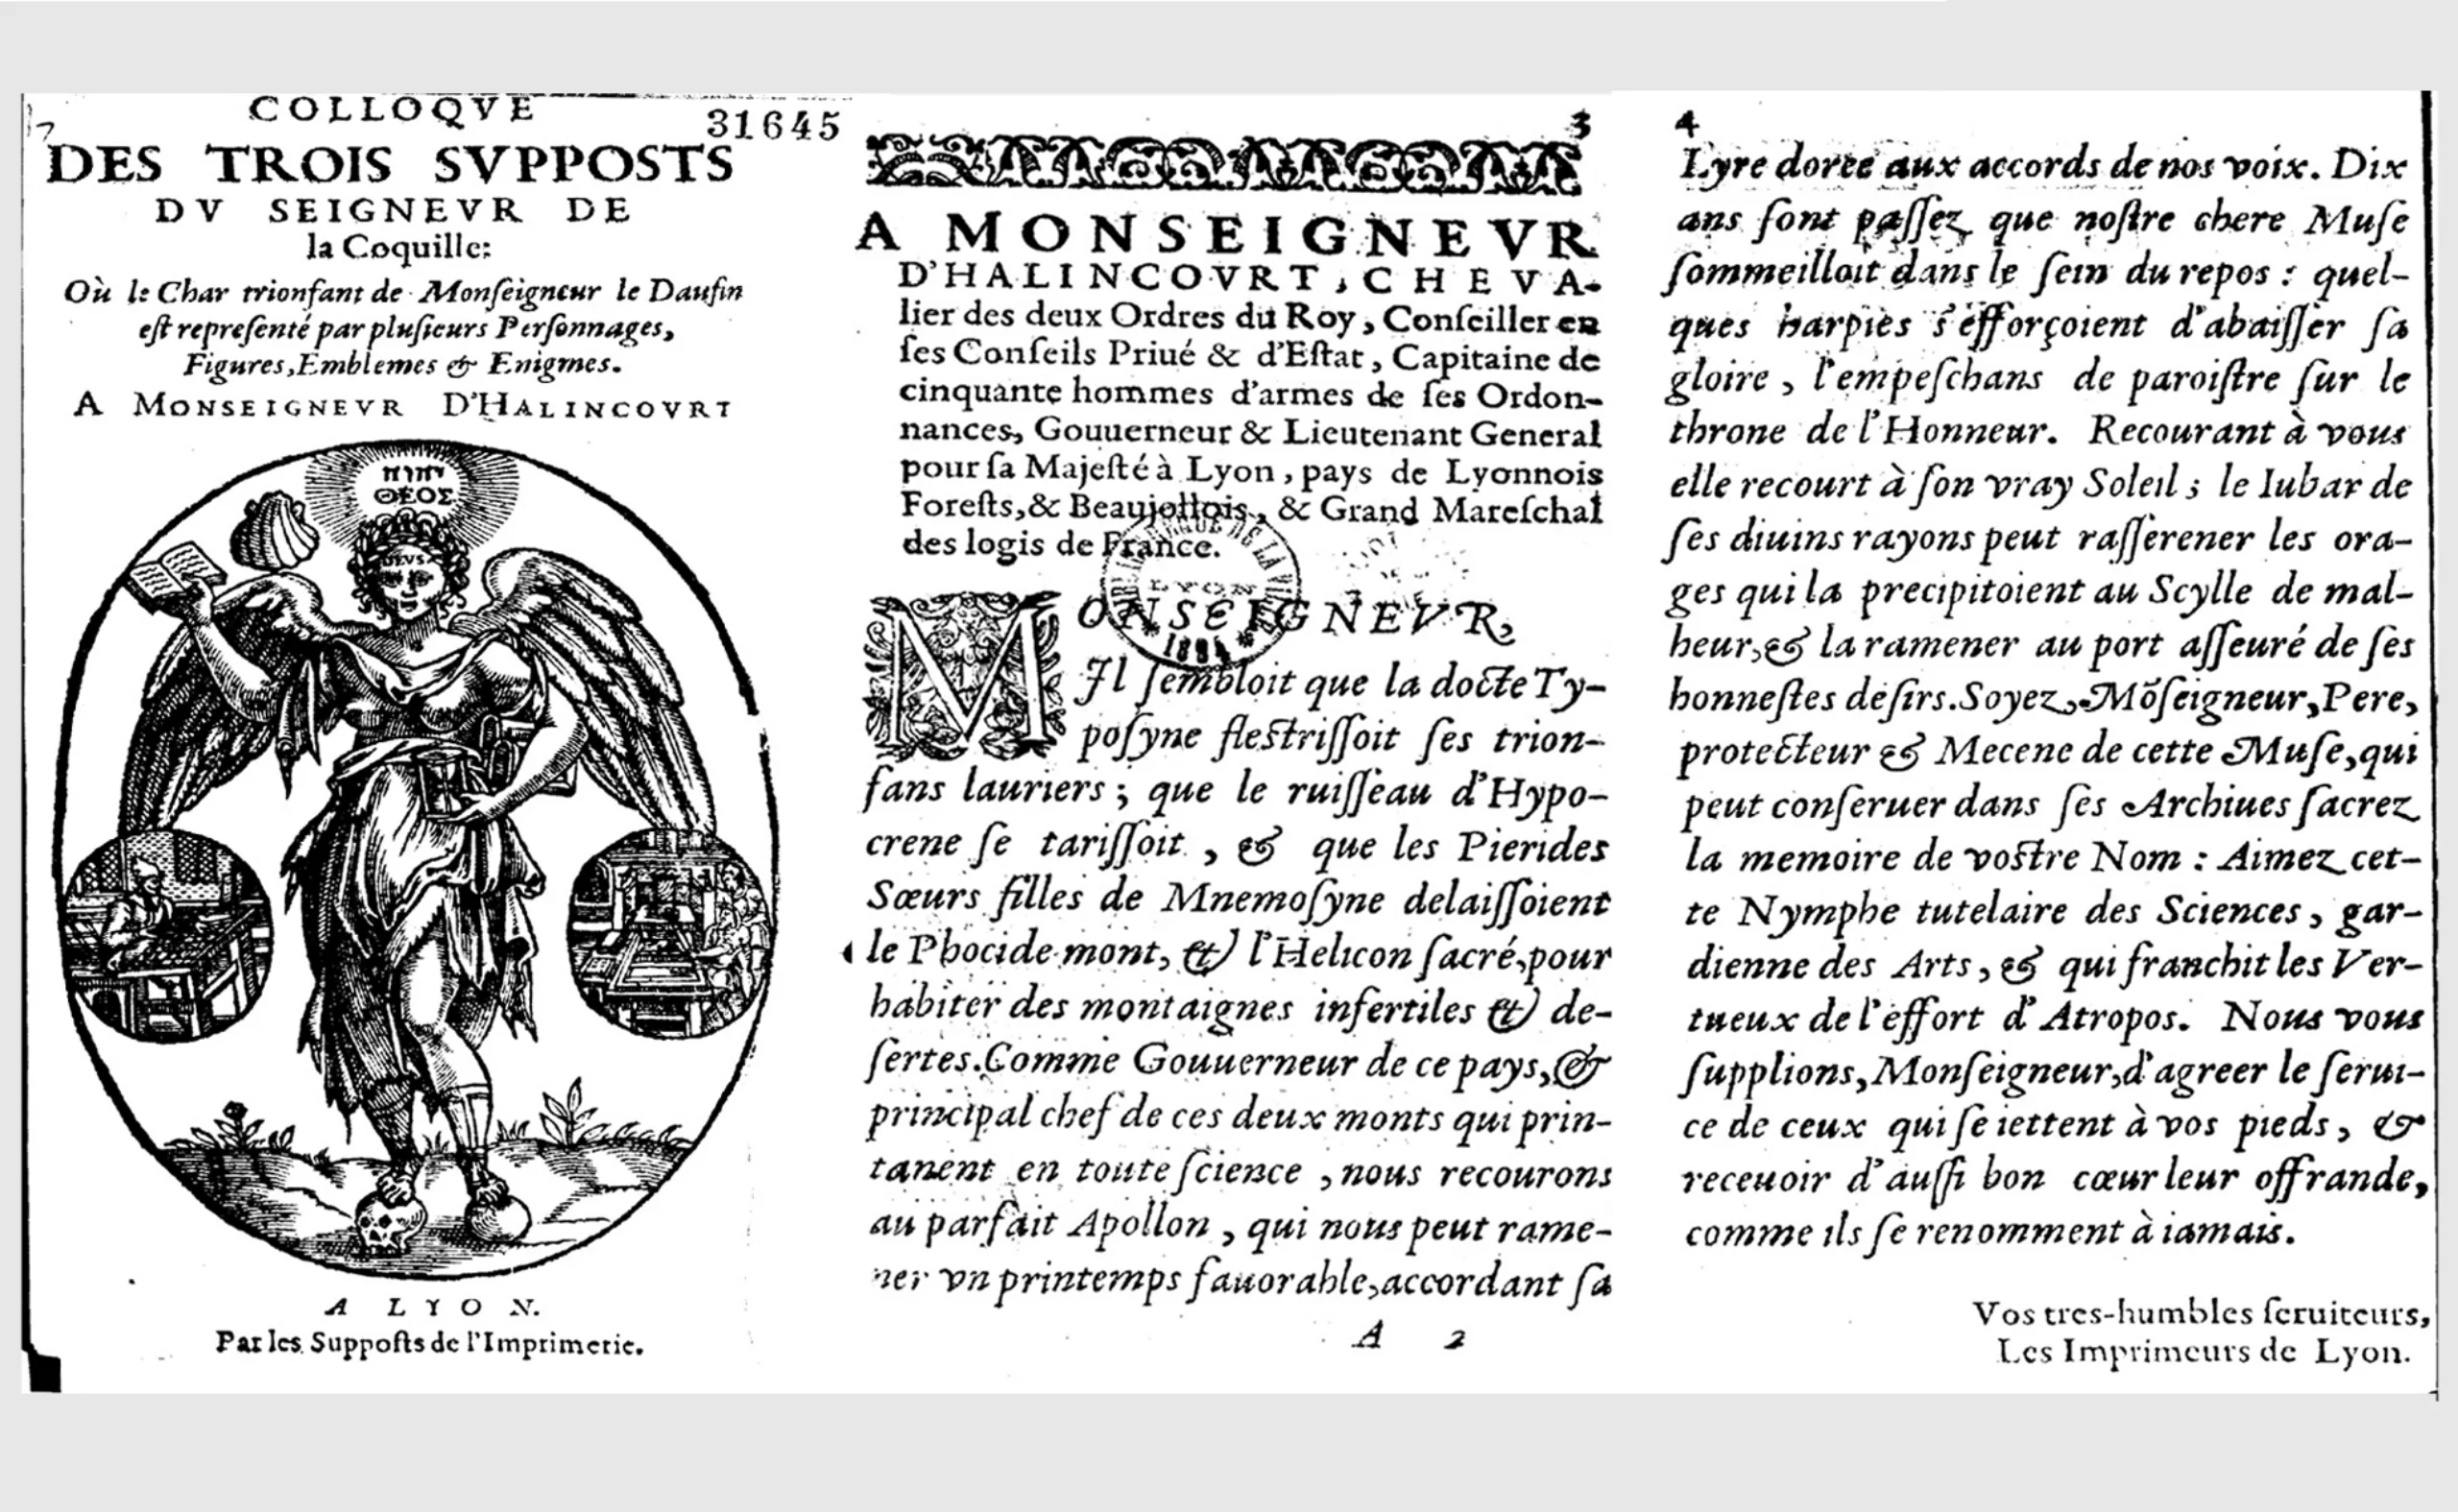 COLLOQVE
31645
DES TROIS SVPPOSTS
DV SEIGNEVR DE
la Coquille:
Où le Char trionfant de Monſeigneur le Daufin
eſt repreſenté par pluſieurs Perſonnages,
Figures, Emblemes & Enigmes.
A MONSEIGNEVR D'HALINCOVRT
ΘΕΟΣ
A LYON.
Par les Suppoſts de l'Imprimerie.
3
A MONSEIGNEVR
D'HALINCOVRT, CHEVA-
lier des deux Ordres du Roy, Conſeiller en
ſes Conſeils Priué & d'Eſtat, Capitaine de
cinquante hommes d'armes de ſes Ordon-
nances, Gouuerneur & Lieutenant General
pour ſa Majeſté à Lyon, pays de Lyonnois
Foreſts, & Beaujollois, & Grand Mareſchal
des logis de France.
MONSEIGNEVR,
Il ſembloit que la docte Ty-
poſyne fleſtriſſoit ſes trion-
fans lauriers; que le ruiſſeau d'Hypo-
crene ſe tariſſoit, & que les Pierides
Sœurs filles de Mnemoſyne delaiſſoient
le Phocide mont, & l'Helicon ſacré, pour
habiter des montaignes infertiles & de-
ſertes. Comme Gouuerneur de ce pays, &
principal chef de ces deux monts qui prin-
tanent en toute ſcience, nous recourons
au parfait Apollon, qui nous peut rame-
ner vn printemps fauorable, accordant ſa
A 2
4
Lyre dorée aux accords de nos voix. Dix
ans ſont paſſez que noſtre chere Muſe
ſommeilloit dans le ſein du repos : quel-
ques harpies s'efforçoient d'abaiſſer ſa
gloire, l'empeſchans de paroiſtre ſur le
throne de l'Honneur. Recourant à vous
elle recourt à ſon vray Soleil; le Iubar de
ſes diuins rayons peut raſſerener les ora-
ges qui la precipitoient au Scylle de mal-
heur, & la ramener au port aſſeuré de ſes
honneſtes deſirs. Soyez, Mõſeigneur, Pere,
protecteur & Mecene de cette Muſe, qui
peut conſeruer dans ſes Archiues ſacrez
la memoire de voſtre Nom : Aimez cet-
te Nymphe tutelaire des Sciences, gar-
dienne des Arts, & qui franchit les Ver-
tueux de l'effort d'Atropos. Nous vous
ſupplions, Monſeigneur, d'agreer le ſerui-
ce de ceux qui ſe iettent à vos pieds, &
receuoir d'auſſi bon cœur leur offrande,
comme ils ſe renomment à iamais.
Vos tres-humbles ſeruiteurs,
Les Imprimeurs de Lyon.